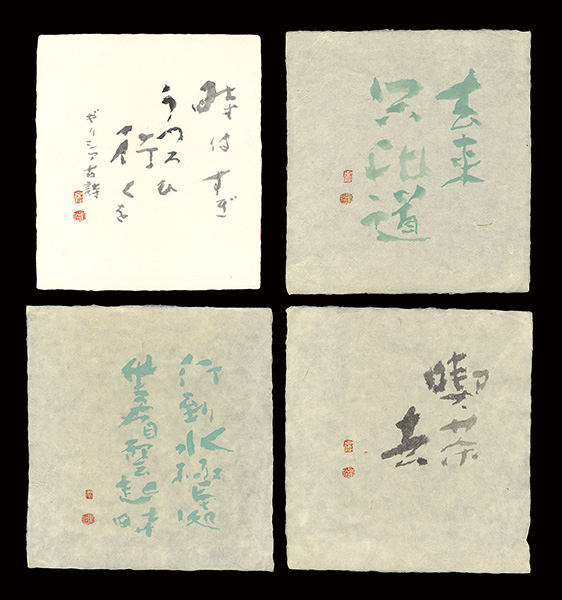 時はすぎ
うつろひ
行くを
ギリシア古詩
去来
只此道
行到水極處
坐看雲起時
喫茶
去